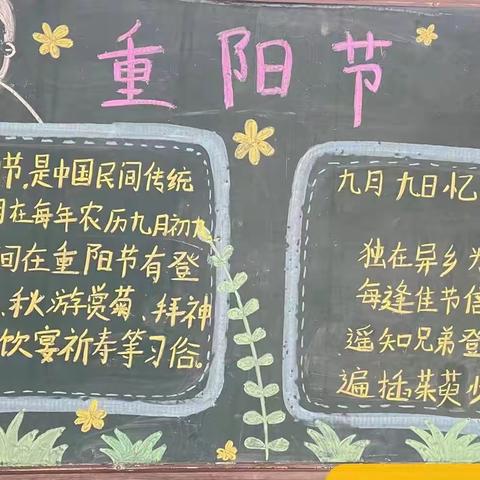 重阳节
节,是中国民间传统
在每年农历九月初九
间在重阳节有登
、秋游赏菊、拜神
饮宴祈寿等习俗。
九月九日忆
独在异乡
每逢佳节倍
遥知兄弟登
遍插茱萸少